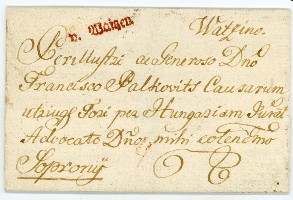 v. Waitzen
Watzino.
Perillustri ac Generoso Dno
Francisco Palkovits Causarum
utriusq Fori per Hungariam Jurat
Advocato Dno mihi colendmo
Soprony